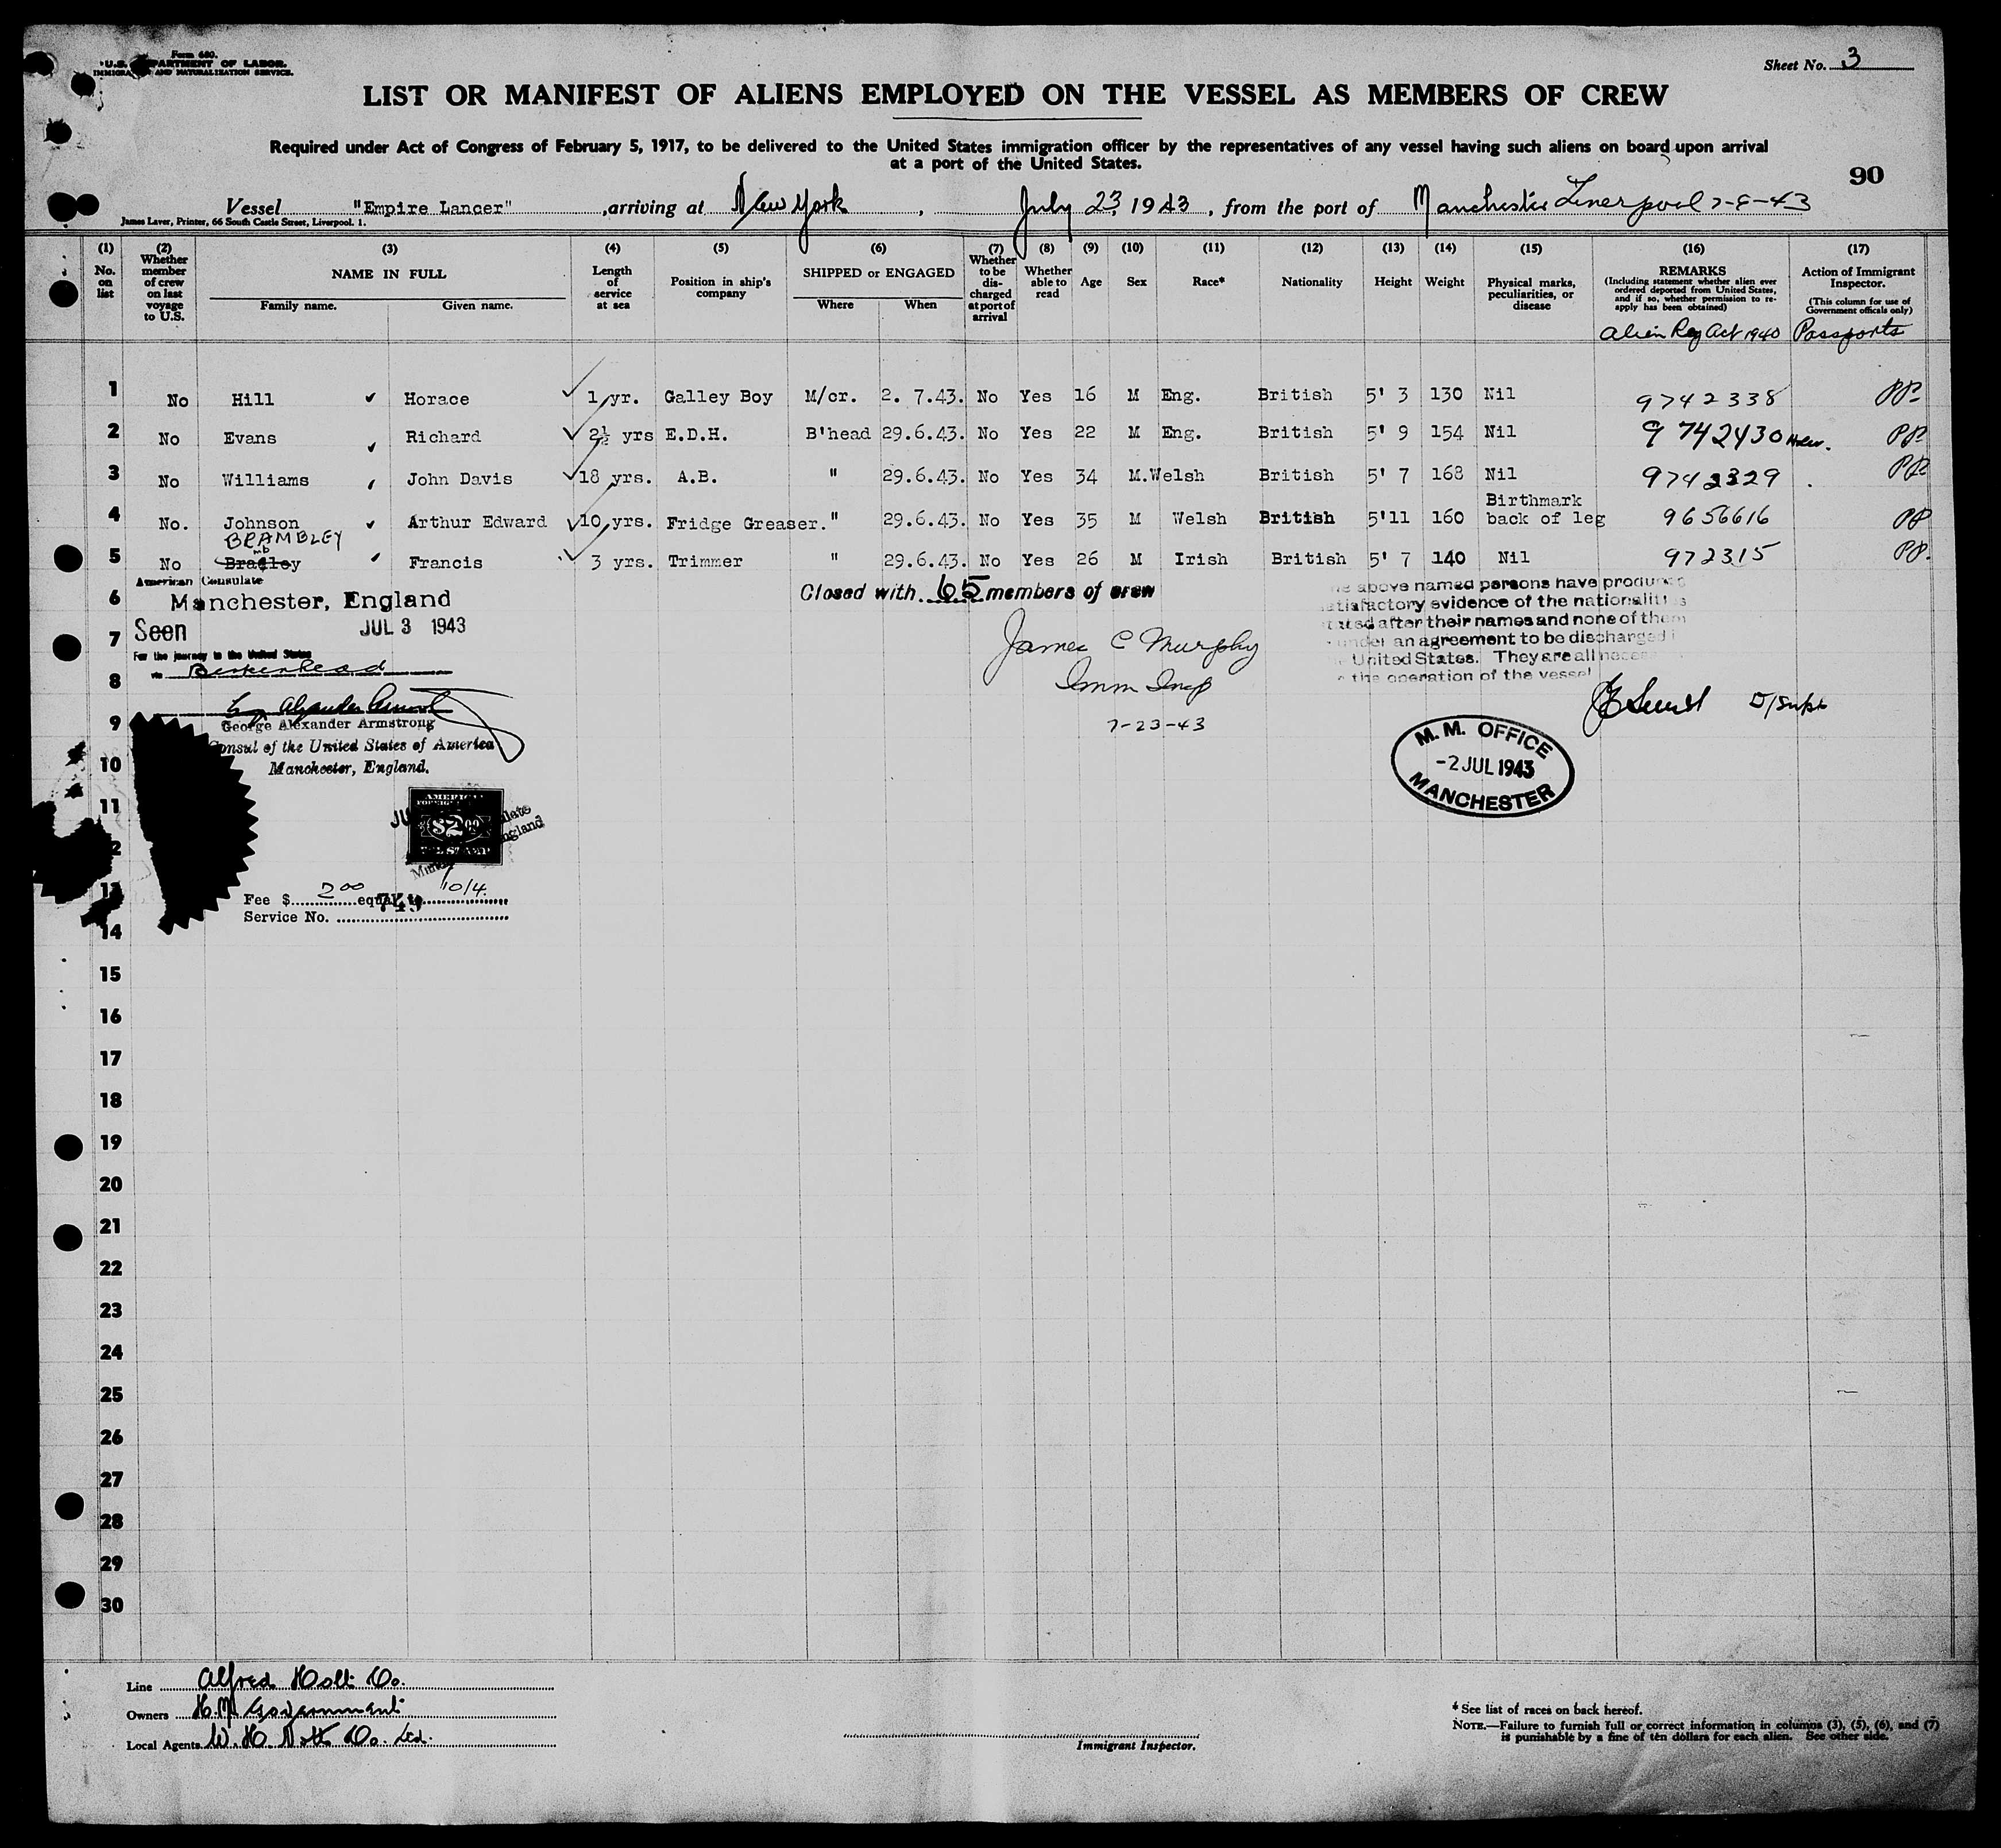 Form 680.
U.S. DEPARTMENT OF LABOR.
IMMIGRATION AND NATURALIZATION SERVICE.
Sheet No. 3
LIST OR MANIFEST OF ALIENS EMPLOYED ON THE VESSEL AS MEMBERS OF CREW
Required under Act of Congress of February 5, 1917, to be delivered to the United States immigration officer by the representatives of any vessel having such aliens on board upon arrival
at a port of the United States.
90
Vessel "Empire Lancer" , arriving at New York , July 23, 1943 , from the port of Manchester Liverpool 7-8-43
James Laver, Printer, 66 South Castle Street, Liverpool. 1.
(1) No. on list
(2) Whether member of crew on last voyage to U.S.
(3) NAME IN FULL Family name. Given name.
(4) Length of service at sea
(5) Position in ship's company
(6) SHIPPED or ENGAGED Where When
(7) Whether to be discharged at port of arrival
(8) Whether able to read
(9) Age
(10) Sex
(11) Race*
(12) Nationality
(13) Height
(14) Weight
(15) Physical marks, peculiarities, or disease
(16) REMARKS (Including statement whether alien ever ordered deported from United States, and if so, whether permission to re-apply has been obtained) Alien Reg Act 1940
(17) Action of Immigrant Inspector. (This column for use of Government officials only) Passports
1 No Hill Horace 1 yr. Galley Boy M/cr. 2. 7.43. No Yes 16 M Eng. British 5' 3 130 Nil 9742338 PP
2 No Evans Richard 2½ yrs E.D.H. B'head 29.6.43. No Yes 22 M Eng. British 5' 9 154 Nil 9742430 PP
3 No Williams John Davis 18 yrs. A.B. " 29.6.43. No Yes 34 M. Welsh British 5' 7 168 Nil 9742329 PP
4 No. Johnson Arthur Edward 10 yrs. Fridge Greaser. " 29.6.43. No Yes 35 M Welsh British 5'11 160 Birthmark back of leg 9656616 PP
BRAMBLEY
mb
5 No Bradley Francis 3 yrs. Trimmer " 29.6.43. No Yes 26 M Irish British 5' 7 140 Nil 972315 PP.
American Consulate
Manchester, England
Seen JUL 3 1943
For the journey to the United States
via Birkenhead
George Alexander Armstrong
Consul of the United States of America
Manchester, England.
Closed with 65 members of crew
James C Murphy
Imm Insp
7-23-43
above named persons have produced
satisfactory evidence of the nationalities
stated after their names and none of them
under an agreement to be discharged
United States. They are all
the operation of the vessel
D/Supt
M. M. OFFICE
-2 JUL 1943
MANCHESTER
AMERICAN
FOREIGN
$2.00
Fee $ 2.00 equal to 10/4.
Service No. 749
6
7
8
9
10
11
12
13
14
15
16
17
18
19
20
21
22
23
24
25
26
27
28
29
30
Line Alfred Holt Co.
Owners H.M. Government
Local Agents W. H. Nott Co. Ltd.
Immigrant Inspector.
* See list of races on back hereof.
NOTE.—Failure to furnish full or correct information in columns (3), (5), (6), and (7)
is punishable by a fine of ten dollars for each alien. See other side.